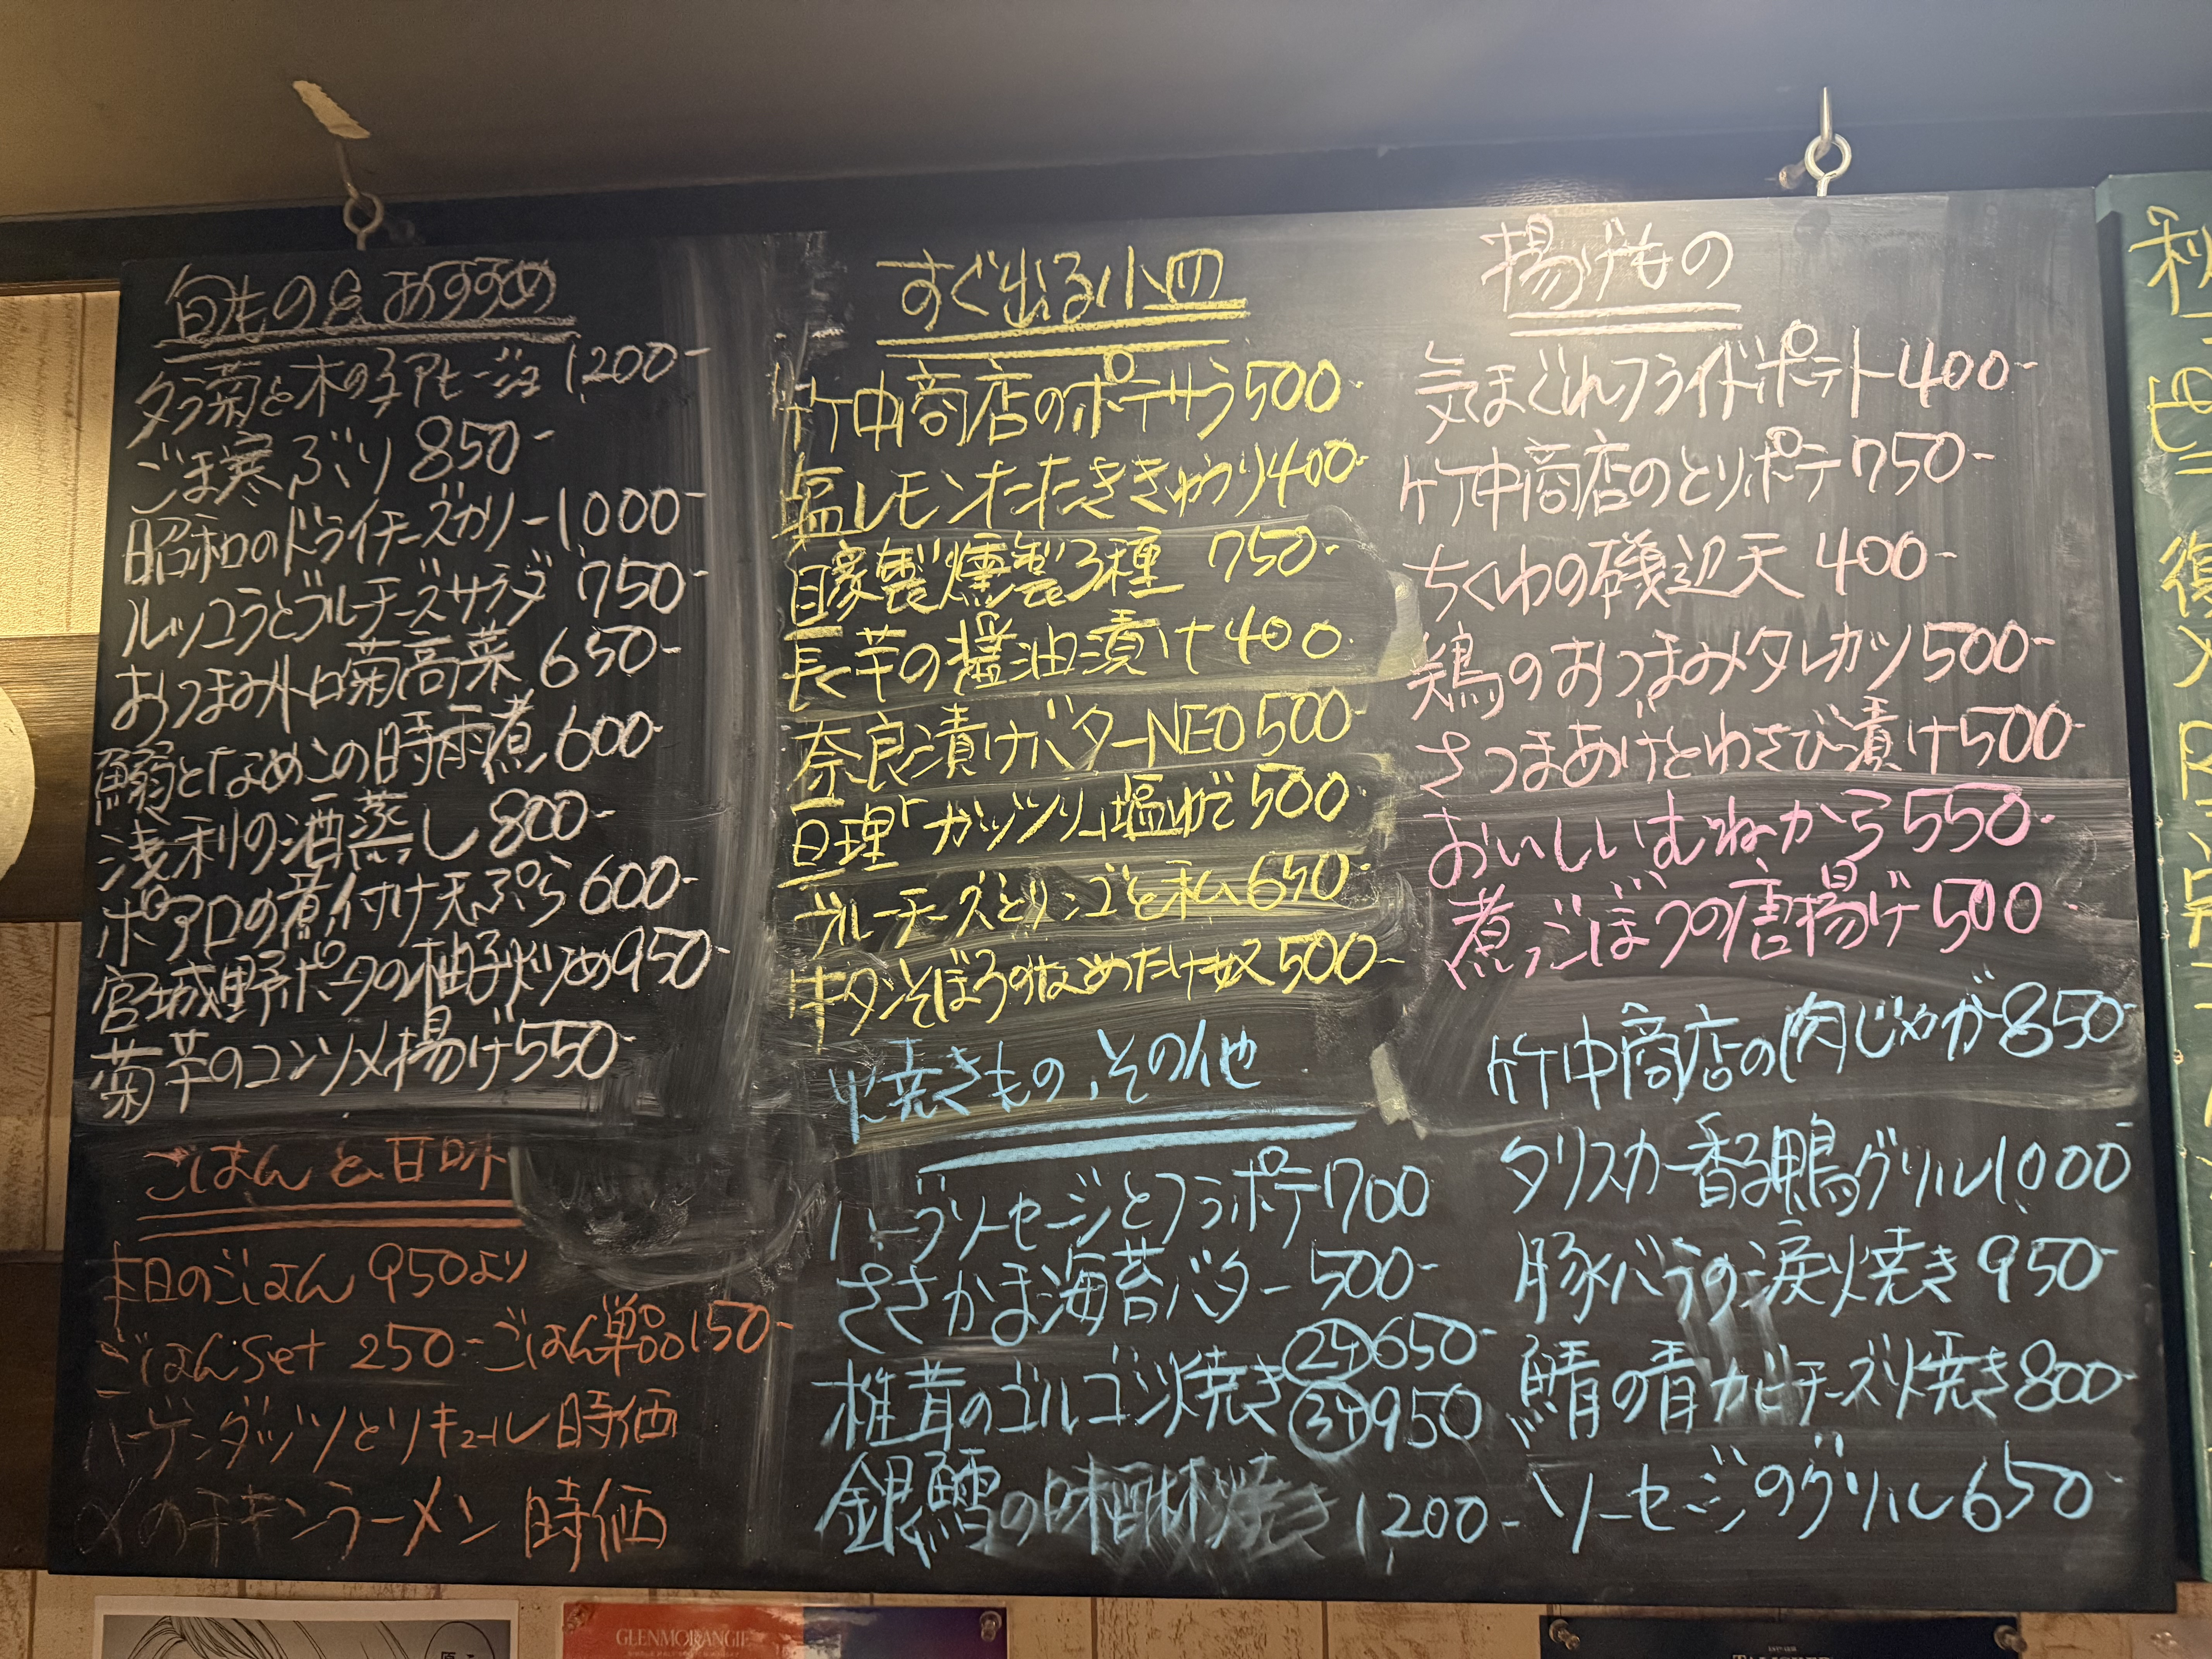 旬もの&おすすめ
タラ菊と木の子アヒージョ 1200-
ごま寒ぶり 850-
昭和のドライチーズカリー1000-
ルッコラとブルーチーズサラダ 750-
おつまみトロ菊高菜 650-
鰯となめこの時雨煮 600-
浅利の酒蒸し 800-
ポアロの煮付け天ぷら 600-
宮城野ポークの柚子炒め950-
菊芋のコンソメ揚げ550-
ごはんと甘味
本日のごはん 950より
ごはんset 250-ごはん単品150-
ハーゲンダッツとリキュール 時価
〆のチキンラーメン 時価
すぐ出る小皿
竹中商店のポテサラ500-
塩レモンたたききゅうり400-
自家製燻製3種 750-
長芋の醤油漬け400-
奈良漬けバターNEO500-
亘理「ガッツリ」塩ゆで500-
ブルーチーズとリンゴと私650-
牛タンそぼろのなめたけ奴500-
焼きもの、その他
ハーブソーセージとフラポテ700
ささかま海苔バター500-
椎茸のゴルゴン焼き②650-
③950
銀鱈の味醂焼き 1200-
揚げもの
気まぐれフライドポテト400-
竹中商店のとりポテ750-
ちくわの磯辺天 400-
鶏のおつまみタレカツ500-
さつまあげとわさび漬け500-
おいしいむねから550-
煮ごぼうの唐揚げ500
竹中商店の肉じゃが850-
タリスカー香る鴨グリル1000
豚バラの涙焼き 950-
鯖の青カビチーズ焼き800-
ソーセージのグリル650-
GLENMORANGIE